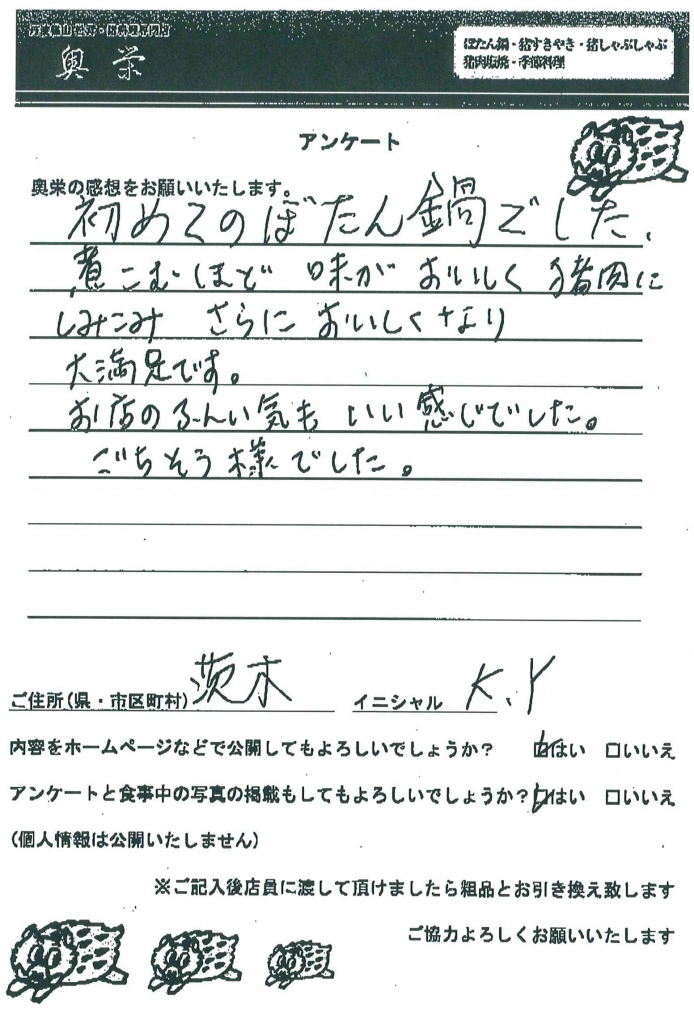 奥栄
ぼたん鍋・猪すきやき・猪しゃぶしゃぶ
猪肉塩焼・季節料理
アンケート
奥栄の感想をお願いいたします。
初めてのぼたん鍋でした、
煮こむほど 味が おいしく 猪肉に
しみこみ さらに おいしくなり
大満足です。
お店のふんい気も いい感じでした。
ごちそう様でした。
ご住所(県・市区町村) 茨木 イニシャル K.Y
内容をホームページなどで公開してもよろしいでしょうか? ☑はい □いいえ
アンケートと食事中の写真の掲載もしてもよろしいでしょうか?☑はい □いいえ
(個人情報は公開いたしません)
※ご記入後店員に渡して頂けましたら粗品とお引き換え致します
ご協力よろしくお願いいたします